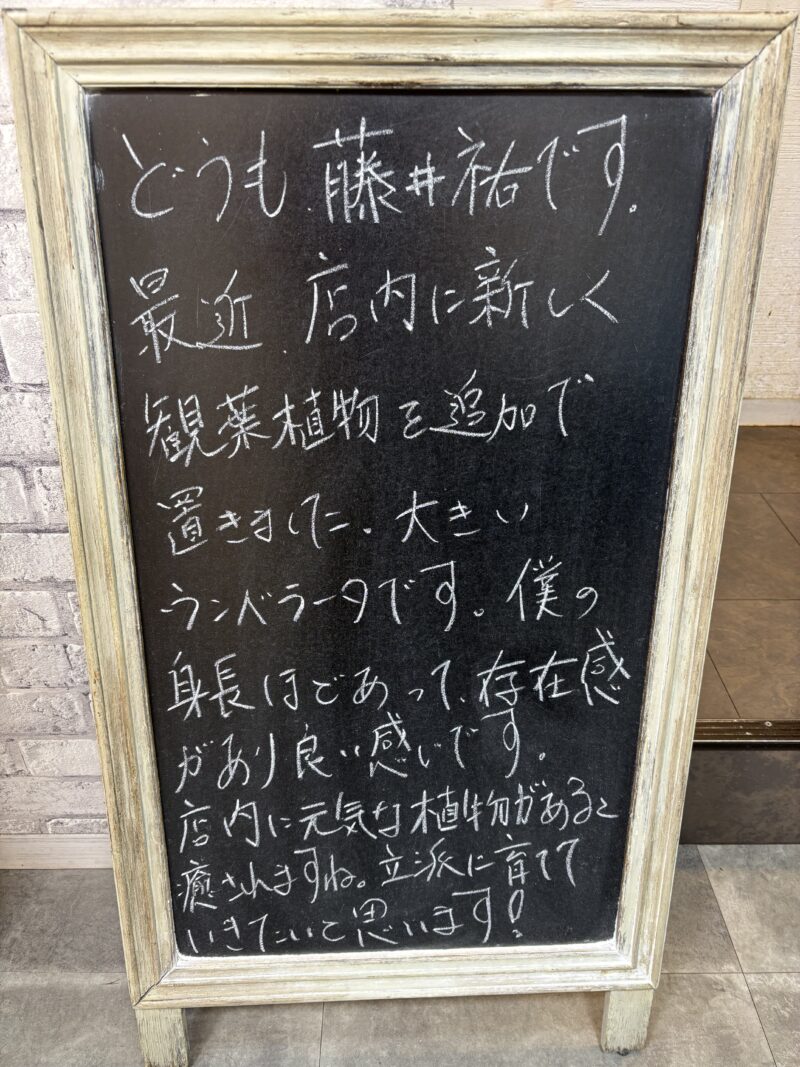 どうも、藤井祐です。
最近、店内に新しく
観葉植物を追加で
置きました。大きい
ウンベラータです。僕の
身長ほどあって、存在感
があり良い感じです。
店内に元気な植物があると
癒されますね。立派に育てて
いきたいと思います!